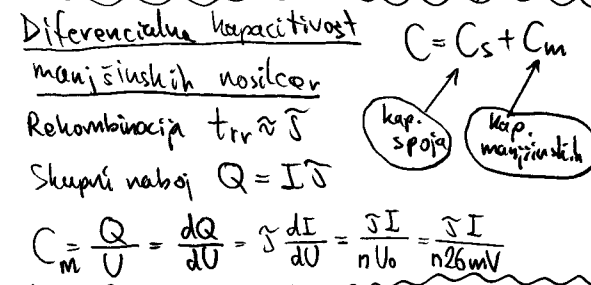 Diferencialna kapacitivost
manjšinskih nosilcev
C = Cs + Cm
kap. spoja
kap. manjšinskih
Rekombinacija trr ≈ τ
Skupni naboj Q = Iτ
Cm = Q/U = dQ/dU = τ dI/dU = τI/nU₀ = τI/n26mV